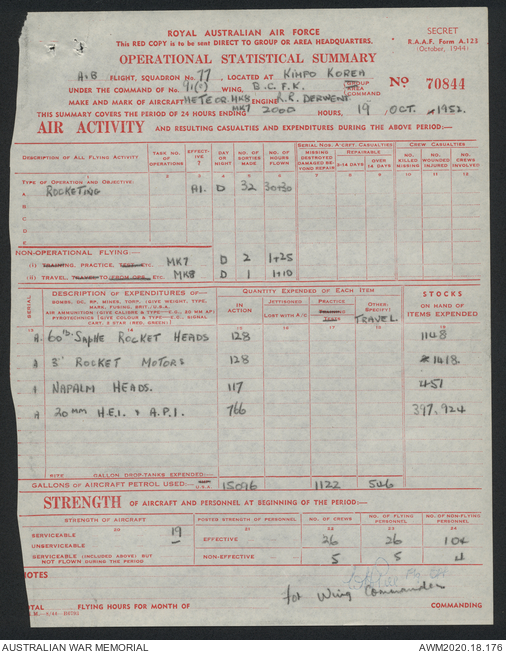 ROYAL AUSTRALIAN AIR FORCE
This RED COPY is to be sent DIRECT TO GROUP OR AREA HEADQUARTERS.
SECRET
R.A.A.F. Form A.123
(October, 1944)
OPERATIONAL STATISTICAL SUMMARY
A&B FLIGHT, SQUADRON No. 77, LOCATED AT KIMPO KOREA
UNDER THE COMMAND OF No. 91(C) WING, B.C.F.K. GROUP AREA COMMAND
No 70844
MAKE AND MARK OF AIRCRAFT METEOR MK8 MK7 ENGINE R.R. DERWENT
THIS SUMMARY COVERS THE PERIOD OF 24 HOURS ENDING 2000 HOURS, 19 OCT. 1952.
AIR ACTIVITY AND RESULTING CASUALTIES AND EXPENDITURES DURING THE ABOVE PERIOD:—
DESCRIPTION OF ALL FLYING ACTIVITY
TASK NO. OF OPERATIONS
EFFECTIVE ?
DAY OR NIGHT
NO. OF SORTIES MADE
NO. OF HOURS FLOWN
SERIAL NOS. AIRCRAFT CASUALTIES
MISSING DESTROYED DAMAGED BEYOND REPAIR
REPAIRABLE
2-14 DAYS
OVER 14 DAYS
CREW CASUALTIES
NO. KILLED MISSING
NO. WOUNDED INJURED
NO. CREWS INVOLVED
TYPE OF OPERATION AND OBJECTIVE:
A. ROCKETING A1. D 32 30+30
B
C
D
E
NON-OPERATIONAL FLYING—
(I) TRAINING, PRACTICE, TEST, ETC. MK7 D 2 1+25
(II) TRAVEL, TRAVEL TO FROM OPS., ETC. MK8 D 1 1+10
SERIAL
DESCRIPTION OF EXPENDITURES OF—
BOMBS, DC, RP, MINES, TORP. (GIVE WEIGHT, TYPE, MARK, FUSING, BRIT./U.S.A.)
AIR AMMUNITION (GIVE CALIBRE & TYPE—E.G., 20 MM AP)
PYROTECHNICS (GIVE COLOUR & TYPE—E.G., SIGNAL CART. 2 STAR (RED, GREEN).)
QUANTITY EXPENDED OF EACH ITEM
IN ACTION
JETTISONED
LOST WITH A/C
PRACTICE
TRAINING
TESTS
OTHER: SPECIFY
TRAVEL
STOCKS
ON HAND OF ITEMS EXPENDED
A. 60lb. SAPHE ROCKET HEADS 128 1148
A 3" ROCKET MOTORS 128 *1418.
A NAPALM HEADS. 117 451
A 20MM H.E.I. & A.P.I. 766 397,924
GALLON DROP-TANKS EXPENDED:—
GALLONS OF AIRCRAFT PETROL USED:— U.S.A. 15096 1122 546
STRENGTH OF AIRCRAFT AND PERSONNEL AT BEGINNING OF THE PERIOD:—
STRENGTH OF AIRCRAFT
POSTED STRENGTH OF PERSONNEL
NO. OF CREWS
NO. OF FLYING PERSONNEL
NO. OF NON-FLYING PERSONNEL
SERVICEABLE 19 EFFECTIVE 26 26 104
UNSERVICEABLE
SERVICEABLE (INCLUDED ABOVE) BUT NOT FLOWN DURING THE PERIOD NON-EFFECTIVE 5 5 4
NOTES
for Wing Commander
TOTAL FLYING HOURS FOR MONTH OF
COMMANDING
AUSTRALIAN WAR MEMORIAL
AWM2020.18.176